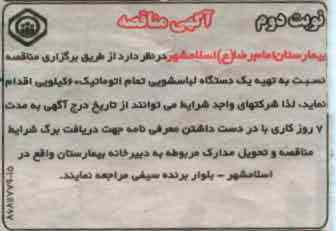 نوبت دوم
آگهی مناقصه
بیمارستان امام رضا(ع) اسلامشهر درنظر دارد از طریق برگزاری مناقصه
نسبت به تهیه یک دستگاه لباسشویی تمام اتوماتیک ۶۰کیلویی اقدام
نماید، لذا شرکتهای واجد شرایط می توانند از تاریخ درج آگهی به مدت
۷ روز کاری با در دست داشتن معرفی نامه جهت دریافت برگ شرایط
مناقصه و تحویل مدارک مربوطه به دبیرخانه بیمارستان واقع در
اسلامشهر - بلوار برنده سیفی مراجعه نمایند.